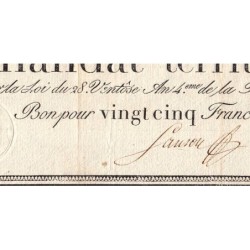 mandat territ
la Loi du 28 Ventôse An 4.eme de la
Bon pour vingt cinq Franc